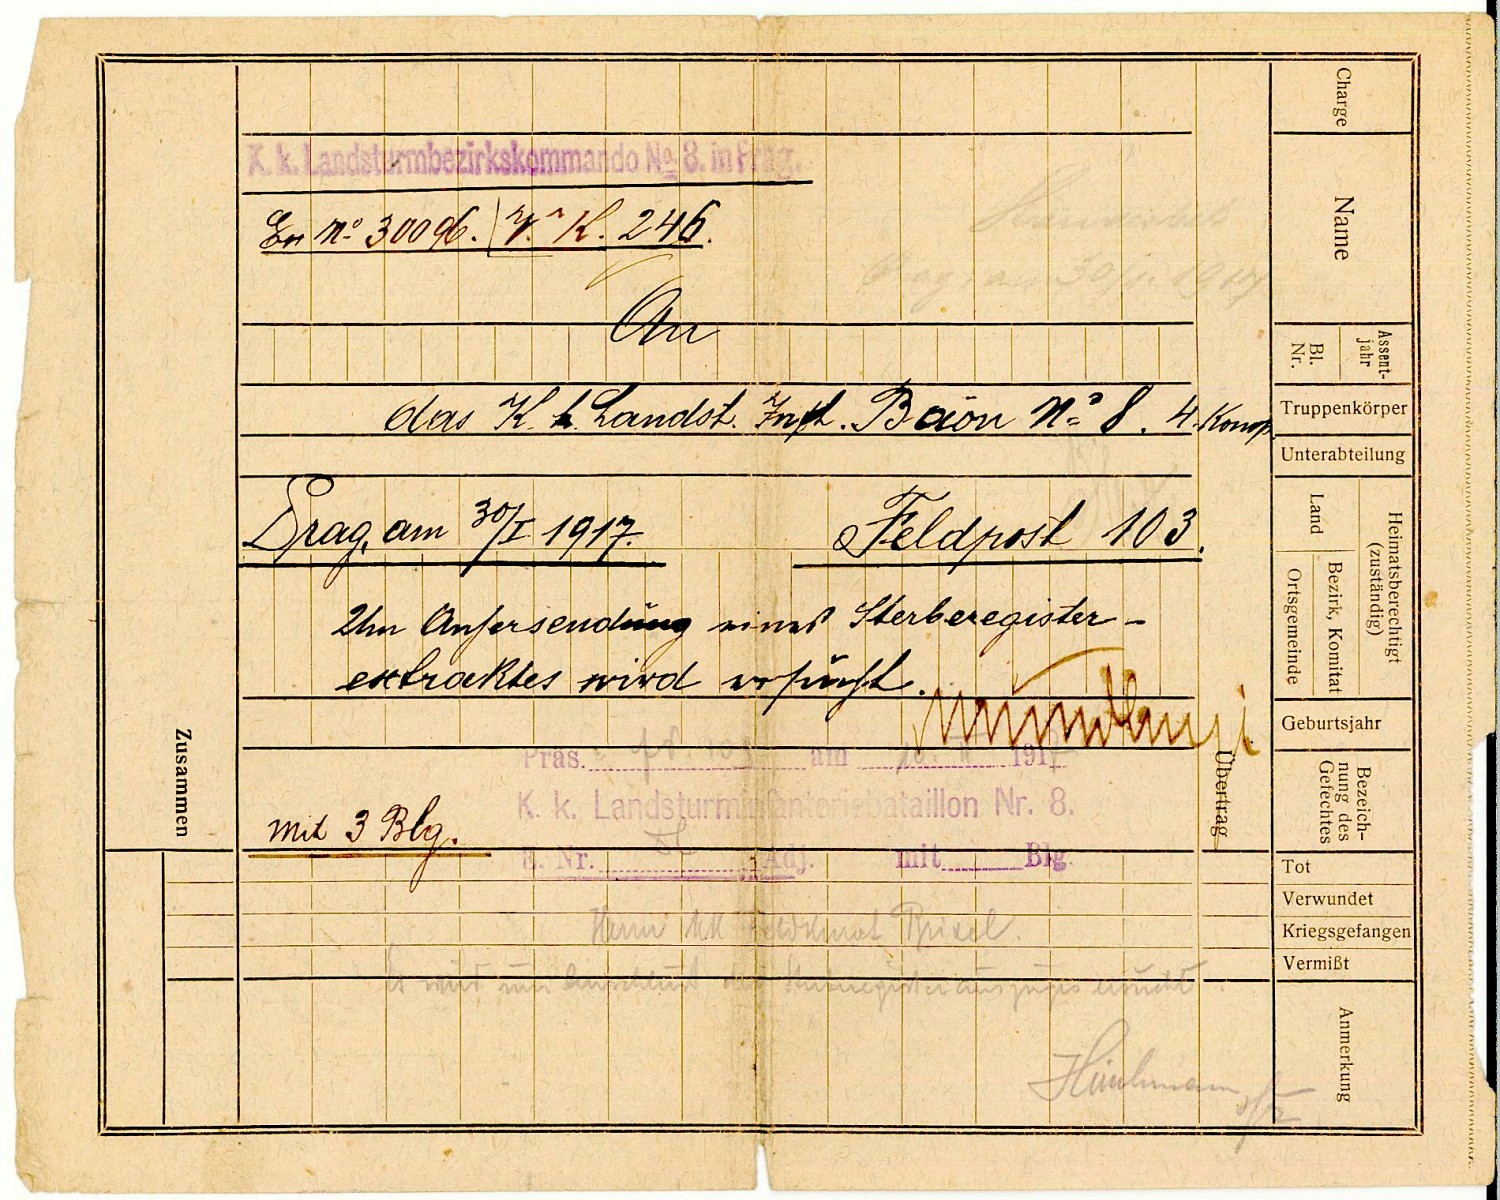 K. k. Landsturmbezirkskommando No 8. in Prag.
En No 30096. V. K. 246.
An
das K. k. Landst. Inft. Baon No 8. 4. Komp
Prag, am 30/I 1917.
Feldpost 103.
Um Anhersendung eines Sterberegister-
extraktes wird ersucht.
Präs. am 10. II 1917
K. k. Landsturminfanteriebataillon Nr. 8.
E. Nr. Adj. mit Blg.
mit 3 Blg.
Herrn
Es wird um
Prag, am 30/I. 1917
Zusammen
Übertrag
Charge
Name
Assent-
jahr
Bl.
Nr.
Truppenkörper
Unterabteilung
Heimatsberechtigt
(zuständig)
Land
Bezirk, Komitat
Ortsgemeinde
Geburtsjahr
Bezeich-
nung des
Gefechtes
Tot
Verwundet
Kriegsgefangen
Vermißt
Anmerkung